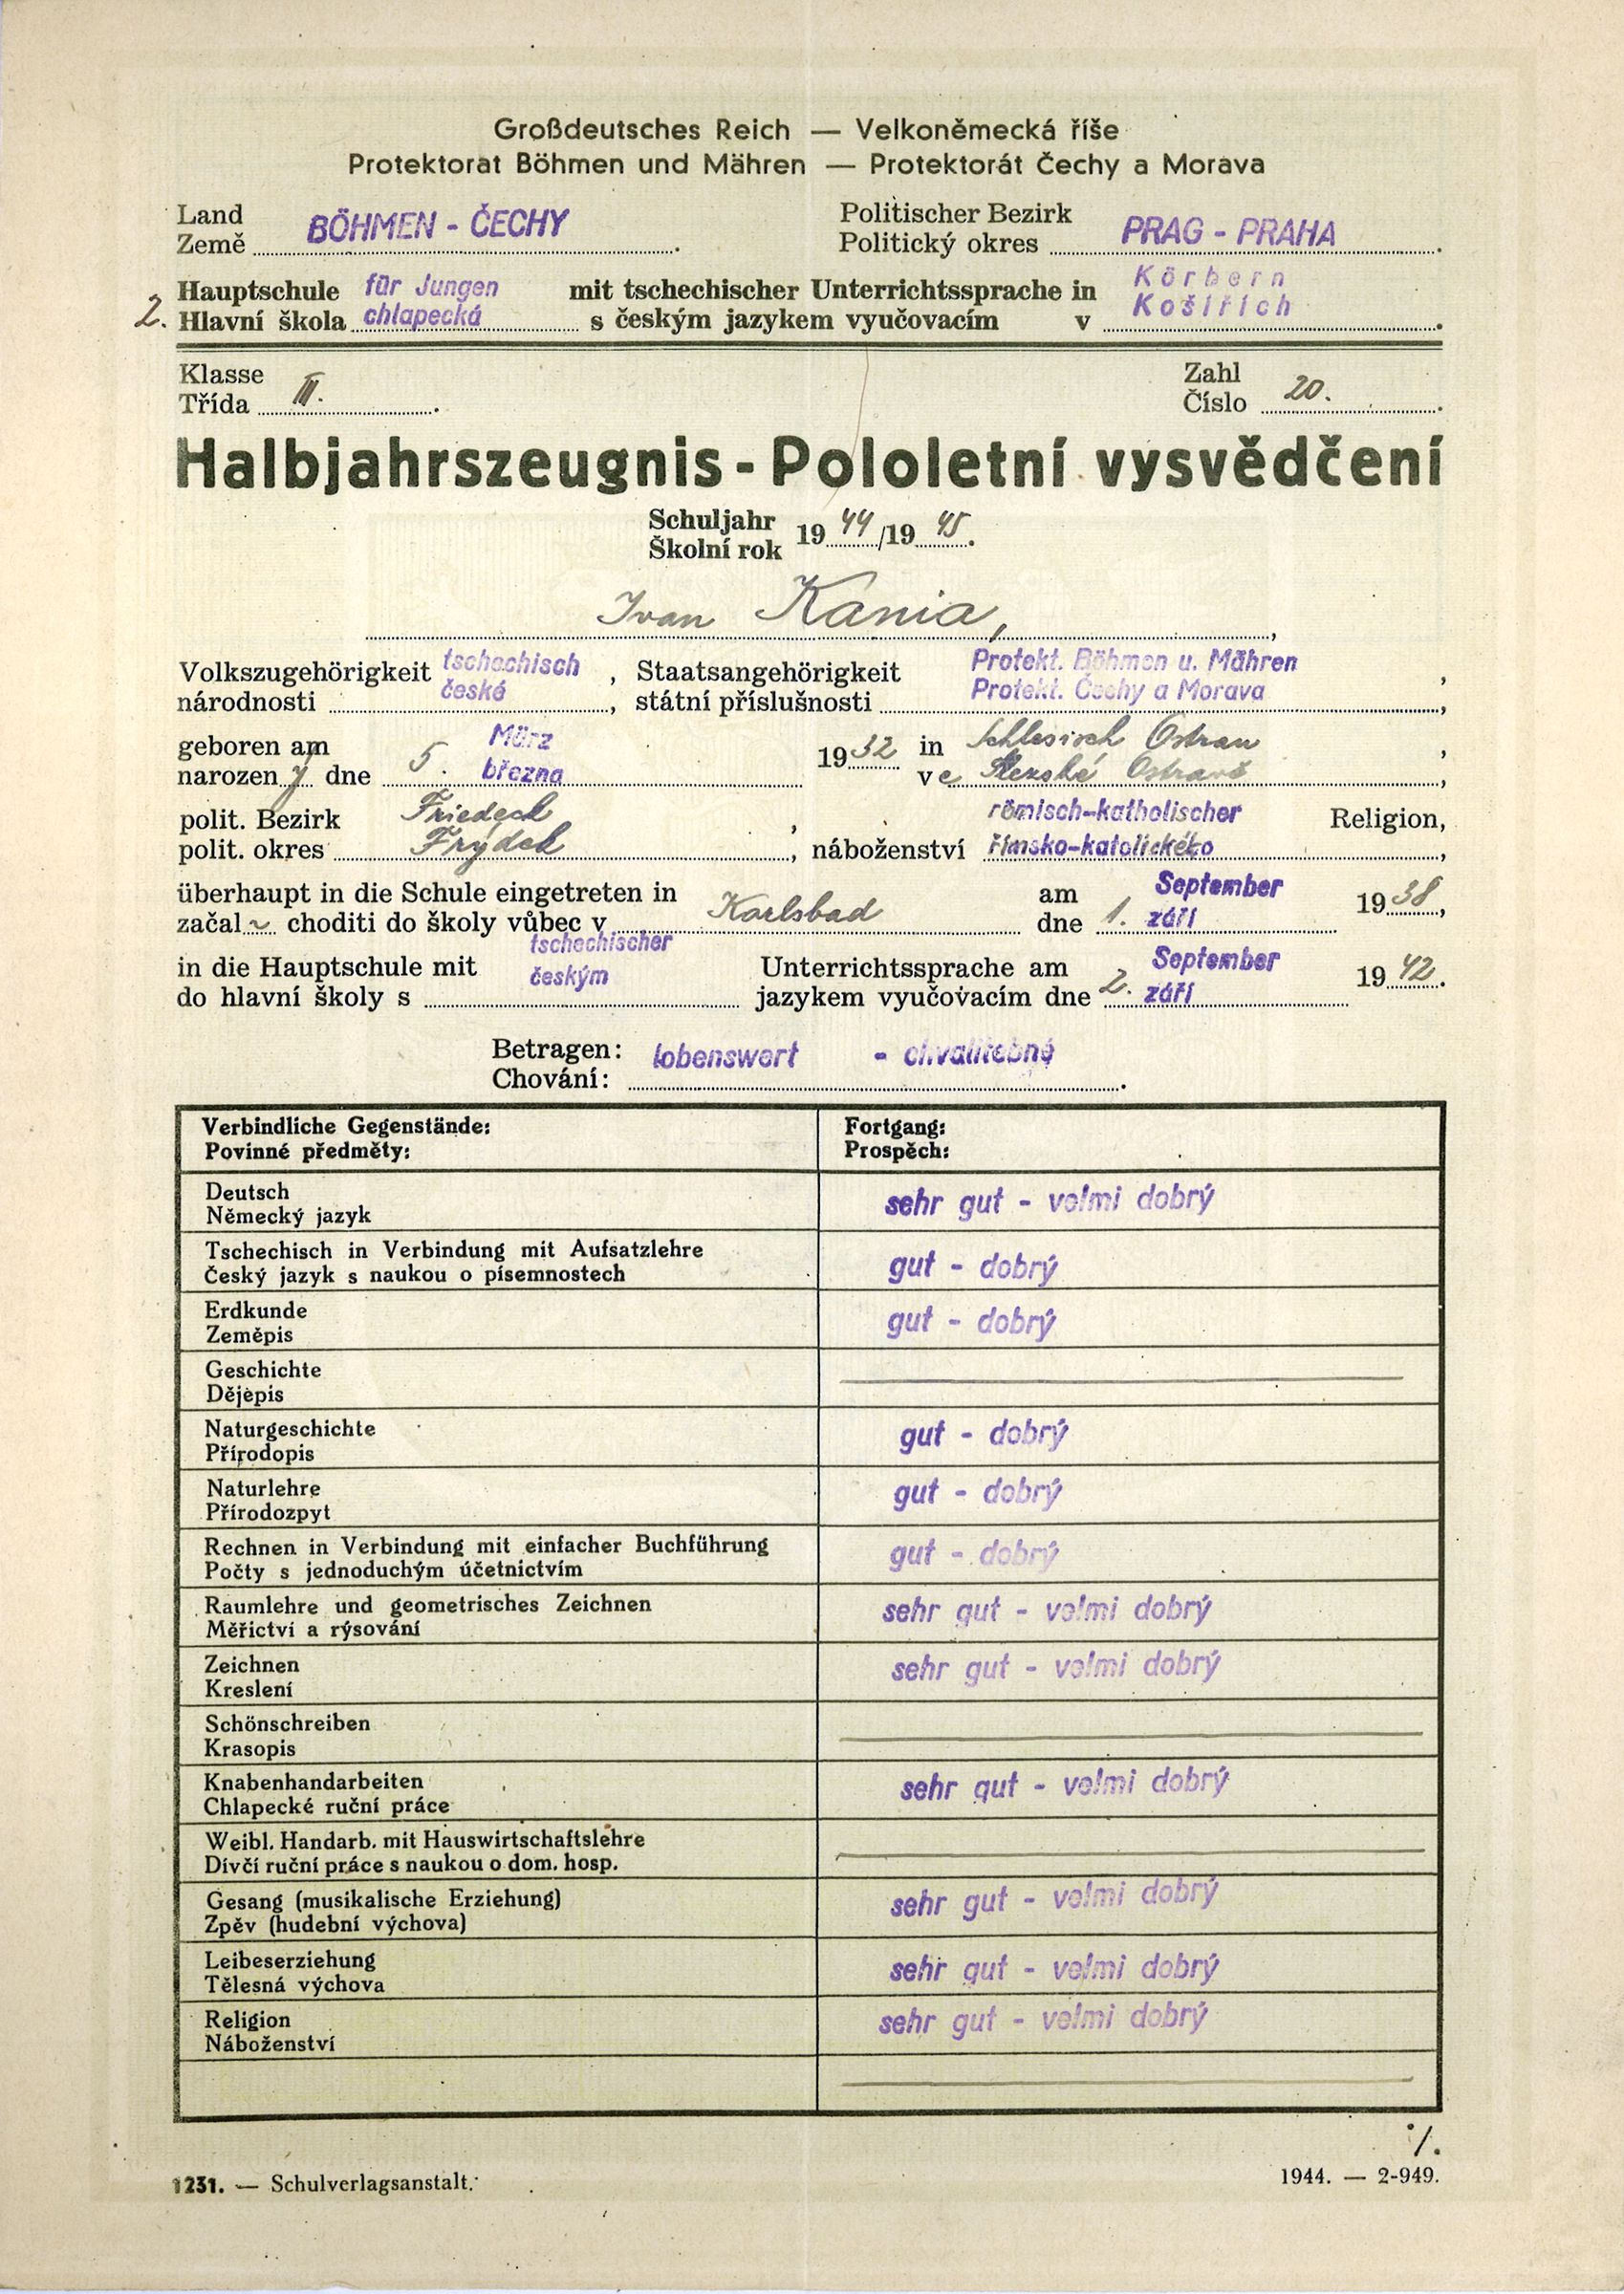 Großdeutsches Reich — Velkoněmecká říše
Protektorat Böhmen und Mähren — Protektorát Čechy a Morava
Land
Země BÖHMEN - ČECHY.
Politischer Bezirk
Politický okres PRAG - PRAHA.
Hauptschule für Jungen mit tschechischer Unterrichtssprache in Körbern
2. Hlavní škola chlapecká s českým jazykem vyučovacím v Košířích.
Klasse
Třída III.
Zahl
Číslo 20.
Halbjahrszeugnis - Pololetní vysvědčení
Schuljahr
Školní rok 1944/1945.
Ivan Kania,
Volkszugehörigkeit tschechisch, Staatsangehörigkeit Protekt. Böhmen u. Mähren,
národnosti české, státní příslušnosti Protekt. Čechy a Morava,
geboren am 5. März 1932 in Schlesisch Ostrau,
narozen ý dne března ve Slezské Ostravě,
polit. Bezirk Friedeck, römisch-katholischer Religion,
polit. okres Frýdek, náboženství římsko-katolického,
überhaupt in die Schule eingetreten in Karlsbad am 1. September 1938,
začal ~ choditi do školy vůbec v dne září
in die Hauptschule mit tschechischer Unterrichtssprache am 2. September 1942.
do hlavní školy s českým jazykem vyučovacím dne září
Betragen: lobenswert - chvalitebné
Chování: .
Verbindliche Gegenstände: Fortgang:
Povinné předměty: Prospěch:
Deutsch
Německý jazyk sehr gut - velmi dobrý
Tschechisch in Verbindung mit Aufsatzlehre
Český jazyk s naukou o písemnostech gut - dobrý
Erdkunde
Zeměpis gut - dobrý
Geschichte
Dějepis
Naturgeschichte
Přírodopis gut - dobrý
Naturlehre
Přírodozpyt gut - dobrý
Rechnen in Verbindung mit einfacher Buchführung
Počty s jednoduchým účetnictvím gut - dobrý
Raumlehre und geometrisches Zeichnen
Měřictví a rýsování sehr gut - velmi dobrý
Zeichnen
Kreslení sehr gut - velmi dobrý
Schönschreiben
Krasopis
Knabenhandarbeiten
Chlapecké ruční práce sehr gut - velmi dobrý
Weibl. Handarb. mit Hauswirtschaftslehre
Dívčí ruční práce s naukou o dom. hosp.
Gesang (musikalische Erziehung)
Zpěv (hudební výchova) sehr gut - velmi dobrý
Leibeserziehung
Tělesná výchova sehr gut - velmi dobrý
Religion
Náboženství sehr gut - velmi dobrý
./.
1231. — Schulverlagsanstalt.
1944. — 2-949.